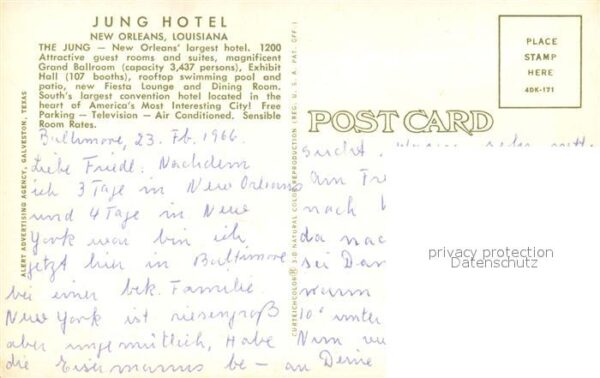 JUNG HOTEL
NEW ORLEANS, LOUISIANA
THE JUNG — New Orleans' largest hotel. 1200
Attractive guest rooms and suites, magnificent
Grand Ballroom (capacity 3,437 persons), Exhibit
Hall (107 booths), rooftop swimming pool and
patio, new Fiesta Lounge and Dining Room.
South's largest convention hotel located in the
heart of America's Most Interesting City! Free
Parking — Television — Air Conditioned. Sensible
Room Rates.
Baltimore, 23. Fb. 1966.
Liebe Friedl. Nachdem
ich 3 Tage in New Orleans
und 4 Tage in New
York war bin ich
jetzt hier in Baltimore
bei einer bek. Familie.
New York ist riesengroß
aber ungemütlich, Habe
die Eisermanns be –
ALERT ADVERTISING AGENCY, GALVESTON, TEXAS
CURTEICHCOLOR® 3-D NATURAL COLOR REPRODUCTION (REG. U. S. A. PAT. OFF.)
POST CARD
PLACE
STAMP
HERE
4DK-171
sucht.
am
nach
da nac
sei Dan
warm
10° unter
Nun
an Deine
privacy protection
Datenschutz